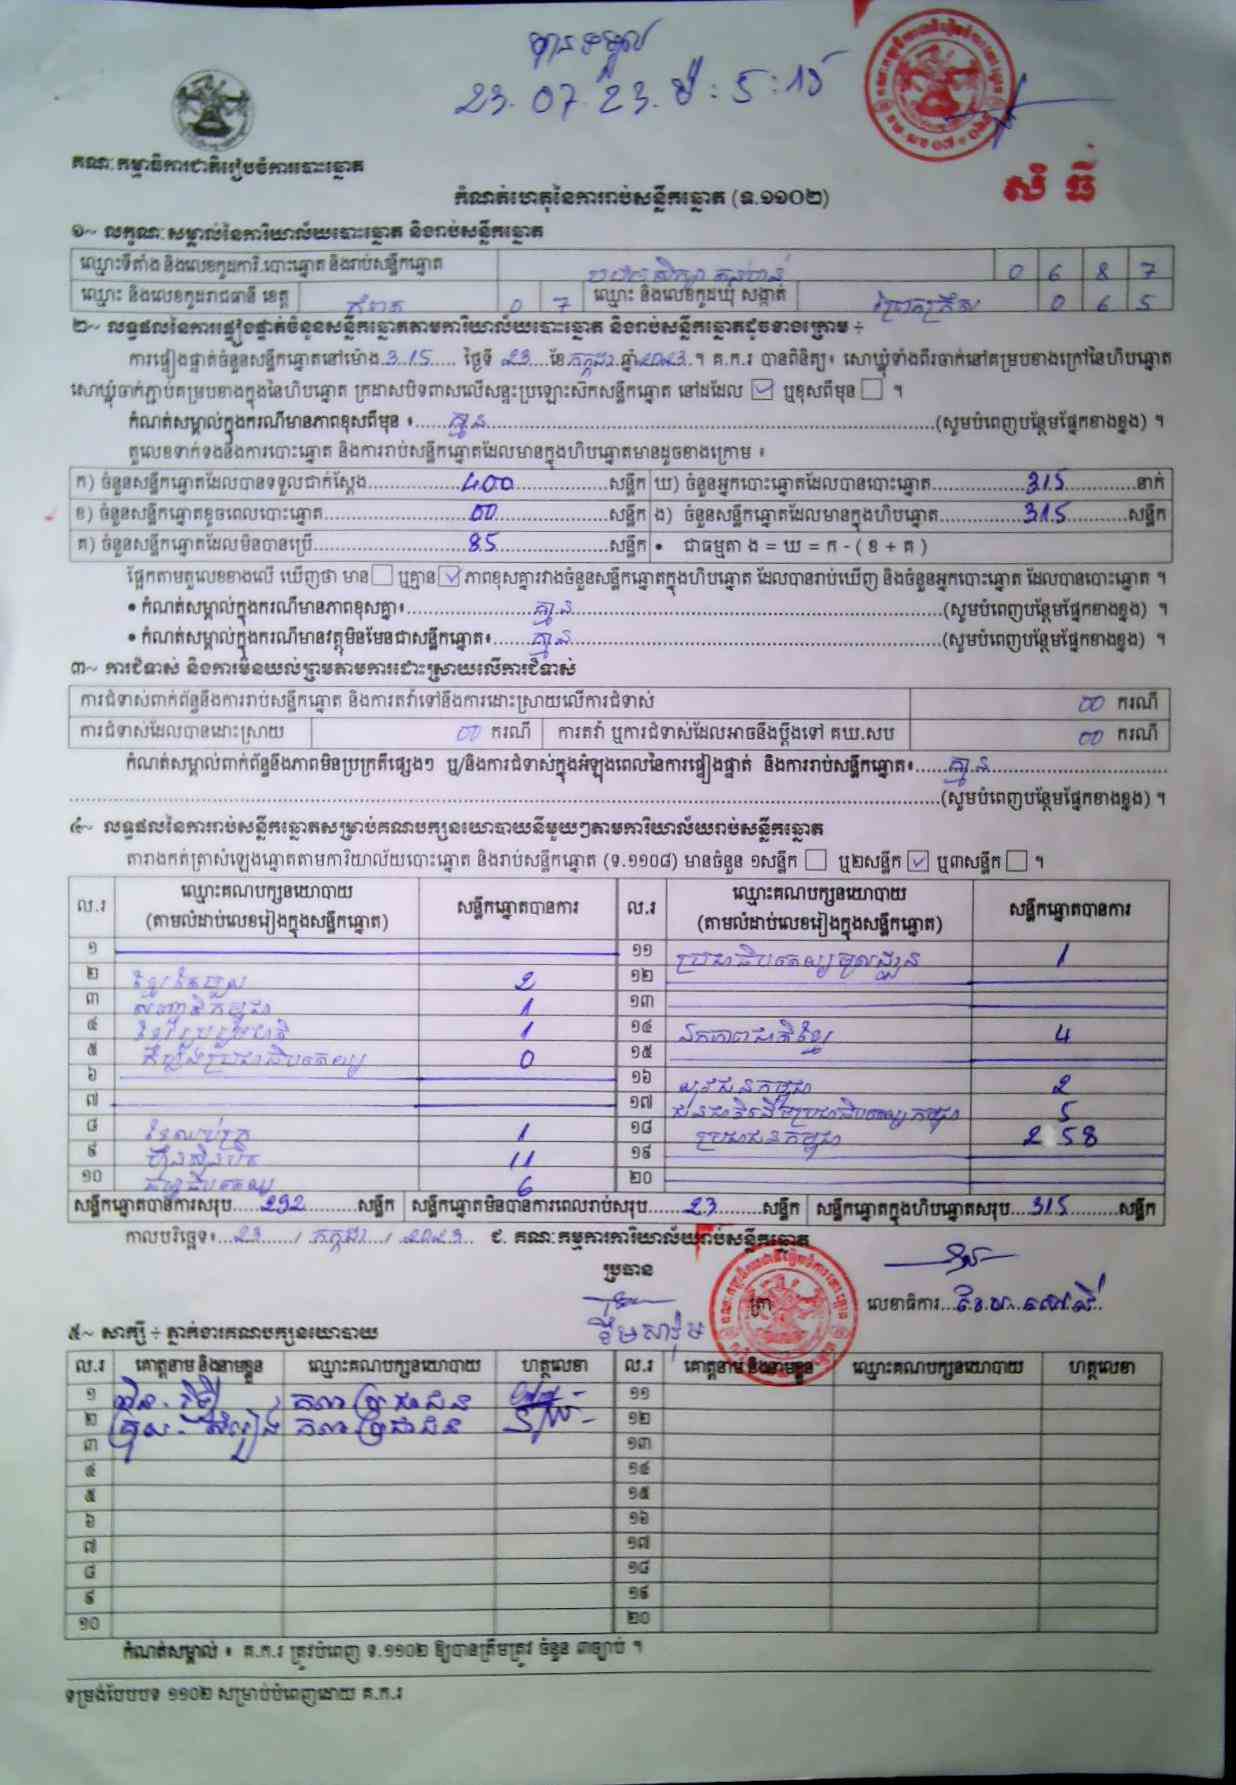 បានទទួល
23.07.23. ម៉: 5:15
គណៈកម្មាធិការជាតិរៀបចំការបោះឆ្នោត
កំណត់ហេតុនៃការរាប់សន្លឹកឆ្នោត (ទ.១១០២)
សិ ធី
១~ លក្ខណៈសម្គាល់នៃការិយាល័យបោះឆ្នោត និងរាប់សន្លឹកឆ្នោត
ឈ្មោះទីតាំង និងលេខកូដការិ.បោះឆ្នោត និងរាប់សន្លឹកឆ្នោត 0 6 8 7
ឈ្មោះ និងលេខកូដរាជធានី ខេត្ត កំពត 0 7 ឈ្មោះ និងលេខកូដឃុំ សង្កាត់ 0 6 5
២~ លទ្ធផលនៃការផ្ទៀងផ្ទាត់ចំនួនសន្លឹកឆ្នោតតាមការិយាល័យបោះឆ្នោត និងរាប់សន្លឹកឆ្នោតដូចខាងក្រោម ÷
ការផ្ទៀងផ្ទាត់ចំនួនសន្លឹកឆ្នោតនៅម៉ោង 3.15 ថ្ងៃទី 23 ខែ កក្កដា ឆ្នាំ 2023 ។ គ.ក.រ បានពិនិត្យ៖ សោឃ្លុំទាំងពីរចាក់នៅគម្របខាងក្រៅនៃហិបឆ្នោត
សោឃ្លុំចាក់ភ្ជាប់គម្របខាងក្នុងនៃហិបឆ្នោត ក្រដាសបិទពាសលើសន្ទះប្រឡោះស៊កសន្លឹកឆ្នោត នៅដដែល ☑ ឬខុសពីមុន ☐ ។
កំណត់សម្គាល់ក្នុងករណីមានភាពខុសពីមុន ៖ គ្មាន (សូមបំពេញបន្ថែមផ្នែកខាងខ្នង) ។
តួលេខទាក់ទងនឹងការបោះឆ្នោត និងការរាប់សន្លឹកឆ្នោតដែលមានក្នុងហិបឆ្នោតមានដូចខាងក្រោម ៖
ក) ចំនួនសន្លឹកឆ្នោតដែលបានទទួលជាក់ស្តែង 400 សន្លឹក ឃ) ចំនួនអ្នកបោះឆ្នោតដែលបានបោះឆ្នោត 315 នាក់
ខ) ចំនួនសន្លឹកឆ្នោតខូចពេលបោះឆ្នោត 00 សន្លឹក ង) ចំនួនសន្លឹកឆ្នោតដែលមានក្នុងហិបឆ្នោត 315 សន្លឹក
គ) ចំនួនសន្លឹកឆ្នោតដែលមិនបានប្រើ 85 សន្លឹក • ជាធម្មតា ង = ឃ = ក - ( ខ + គ )
ផ្អែកតាមតួលេខខាងលើ ឃើញថា មាន ☐ ឬគ្មាន ☑ ភាពខុសគ្នារវាងចំនួនសន្លឹកឆ្នោតក្នុងហិបឆ្នោត ដែលបានរាប់ឃើញ និងចំនួនអ្នកបោះឆ្នោត ដែលបានបោះឆ្នោត ។
• កំណត់សម្គាល់ក្នុងករណីមានភាពខុសគ្នា៖ គ្មាន (សូមបំពេញបន្ថែមផ្នែកខាងខ្នង) ។
• កំណត់សម្គាល់ក្នុងករណីមានវត្ថុមិនមែនជាសន្លឹកឆ្នោត៖ គ្មាន (សូមបំពេញបន្ថែមផ្នែកខាងខ្នង) ។
៣~ ការជំទាស់ និងការមិនយល់ព្រមតាមការដោះស្រាយលើការជំទាស់
ការជំទាស់ពាក់ព័ន្ធនឹងការរាប់សន្លឹកឆ្នោត និងការតវ៉ាទៅនឹងការដោះស្រាយលើការជំទាស់ 00 ករណី
ការជំទាស់ដែលបានដោះស្រាយ 00 ករណី ការតវ៉ា ឬការជំទាស់ដែលអាចនឹងប្តឹងទៅ គឃ.សប 00 ករណី
កំណត់សម្គាល់ពាក់ព័ន្ធនឹងភាពមិនប្រក្រតីផ្សេងៗ ឬ/និងការជំទាស់ក្នុងអំឡុងពេលនៃការផ្ទៀងផ្ទាត់ និងការរាប់សន្លឹកឆ្នោត៖ គ្មាន
(សូមបំពេញបន្ថែមផ្នែកខាងខ្នង) ។
៤~ លទ្ធផលនៃការរាប់សន្លឹកឆ្នោតសម្រាប់គណបក្សនយោបាយនីមួយៗតាមការិយាល័យរាប់សន្លឹកឆ្នោត
តារាងកត់ត្រាសំឡេងឆ្នោតតាមការិយាល័យបោះឆ្នោត និងរាប់សន្លឹកឆ្នោត (ទ.១១០៨) មានចំនួន ១សន្លឹក ☐ ឬ២សន្លឹក ☑ ឬ៣សន្លឹក ☐ ។
ល.រ ឈ្មោះគណបក្សនយោបាយ (តាមលំដាប់លេខរៀងក្នុងសន្លឹកឆ្នោត) សន្លឹកឆ្នោតបានការ ល.រ ឈ្មោះគណបក្សនយោបាយ (តាមលំដាប់លេខរៀងក្នុងសន្លឹកឆ្នោត) សន្លឹកឆ្នោតបានការ
១ ១១ ប្រជាធិបតេយ្យមូលដ្ឋាន 1
២ ខ្មែរតែមួយ 2 ១២
៣ សញ្ជាតិកម្ពុជា 1 ១៣
៤ ខ្មែររួបរួមជាតិ 1 ១៤ ឯកភាពជាតិខ្មែរ 4
៥ កម្លាំងប្រជាធិបតេយ្យ 0 ១៥
៦ ១៦ យុវជនកម្ពុជា 2
៧ ១៧ ជនជាតិដើមប្រជាធិបតេយ្យកម្ពុជា 5
៨ ខ្មែរឈប់ក្រ 1 ១៨ ប្រជាជនកម្ពុជា 258
៩ ហ្វ៊ុនស៊ិនប៉ិច 11 ១៩
១០ កម្មធិបតេយ្យ 6 ២០
សន្លឹកឆ្នោតបានការសរុប 292 សន្លឹក សន្លឹកឆ្នោតមិនបានការពេលរាប់សរុប 23 សន្លឹក សន្លឹកឆ្នោតក្នុងហិបឆ្នោតសរុប 315 សន្លឹក
កាលបរិច្ឆេទ៖ 23 / កក្កដា / 2023 ជ. គណៈកម្មការការិយាល័យរាប់សន្លឹកឆ្នោត
ប្រធាន
ត្រា
លេខាធិការ
៥~ សាក្សី ÷ ភ្នាក់ងារគណបក្សនយោបាយ
ល.រ គោត្តនាម និងនាមខ្លួន ឈ្មោះគណបក្សនយោបាយ ហត្ថលេខា ល.រ គោត្តនាម និងនាមខ្លួន ឈ្មោះគណបក្សនយោបាយ ហត្ថលេខា
១ គណប្រជាជន ១១
២ គណប្រជាជន ១២
៣ ១៣
៤ ១៤
៥ ១៥
៦ ១៦
៧ ១៧
៨ ១៨
៩ ១៩
១០ ២០
កំណត់សម្គាល់ ៖ គ.ក.រ ត្រូវបំពេញ ទ.១១០២ ឱ្យបានត្រឹមត្រូវ ចំនួន ៣ច្បាប់ ។
ទម្រង់បែបបទ ១១០២ សម្រាប់បំពេញដោយ គ.ក.រ